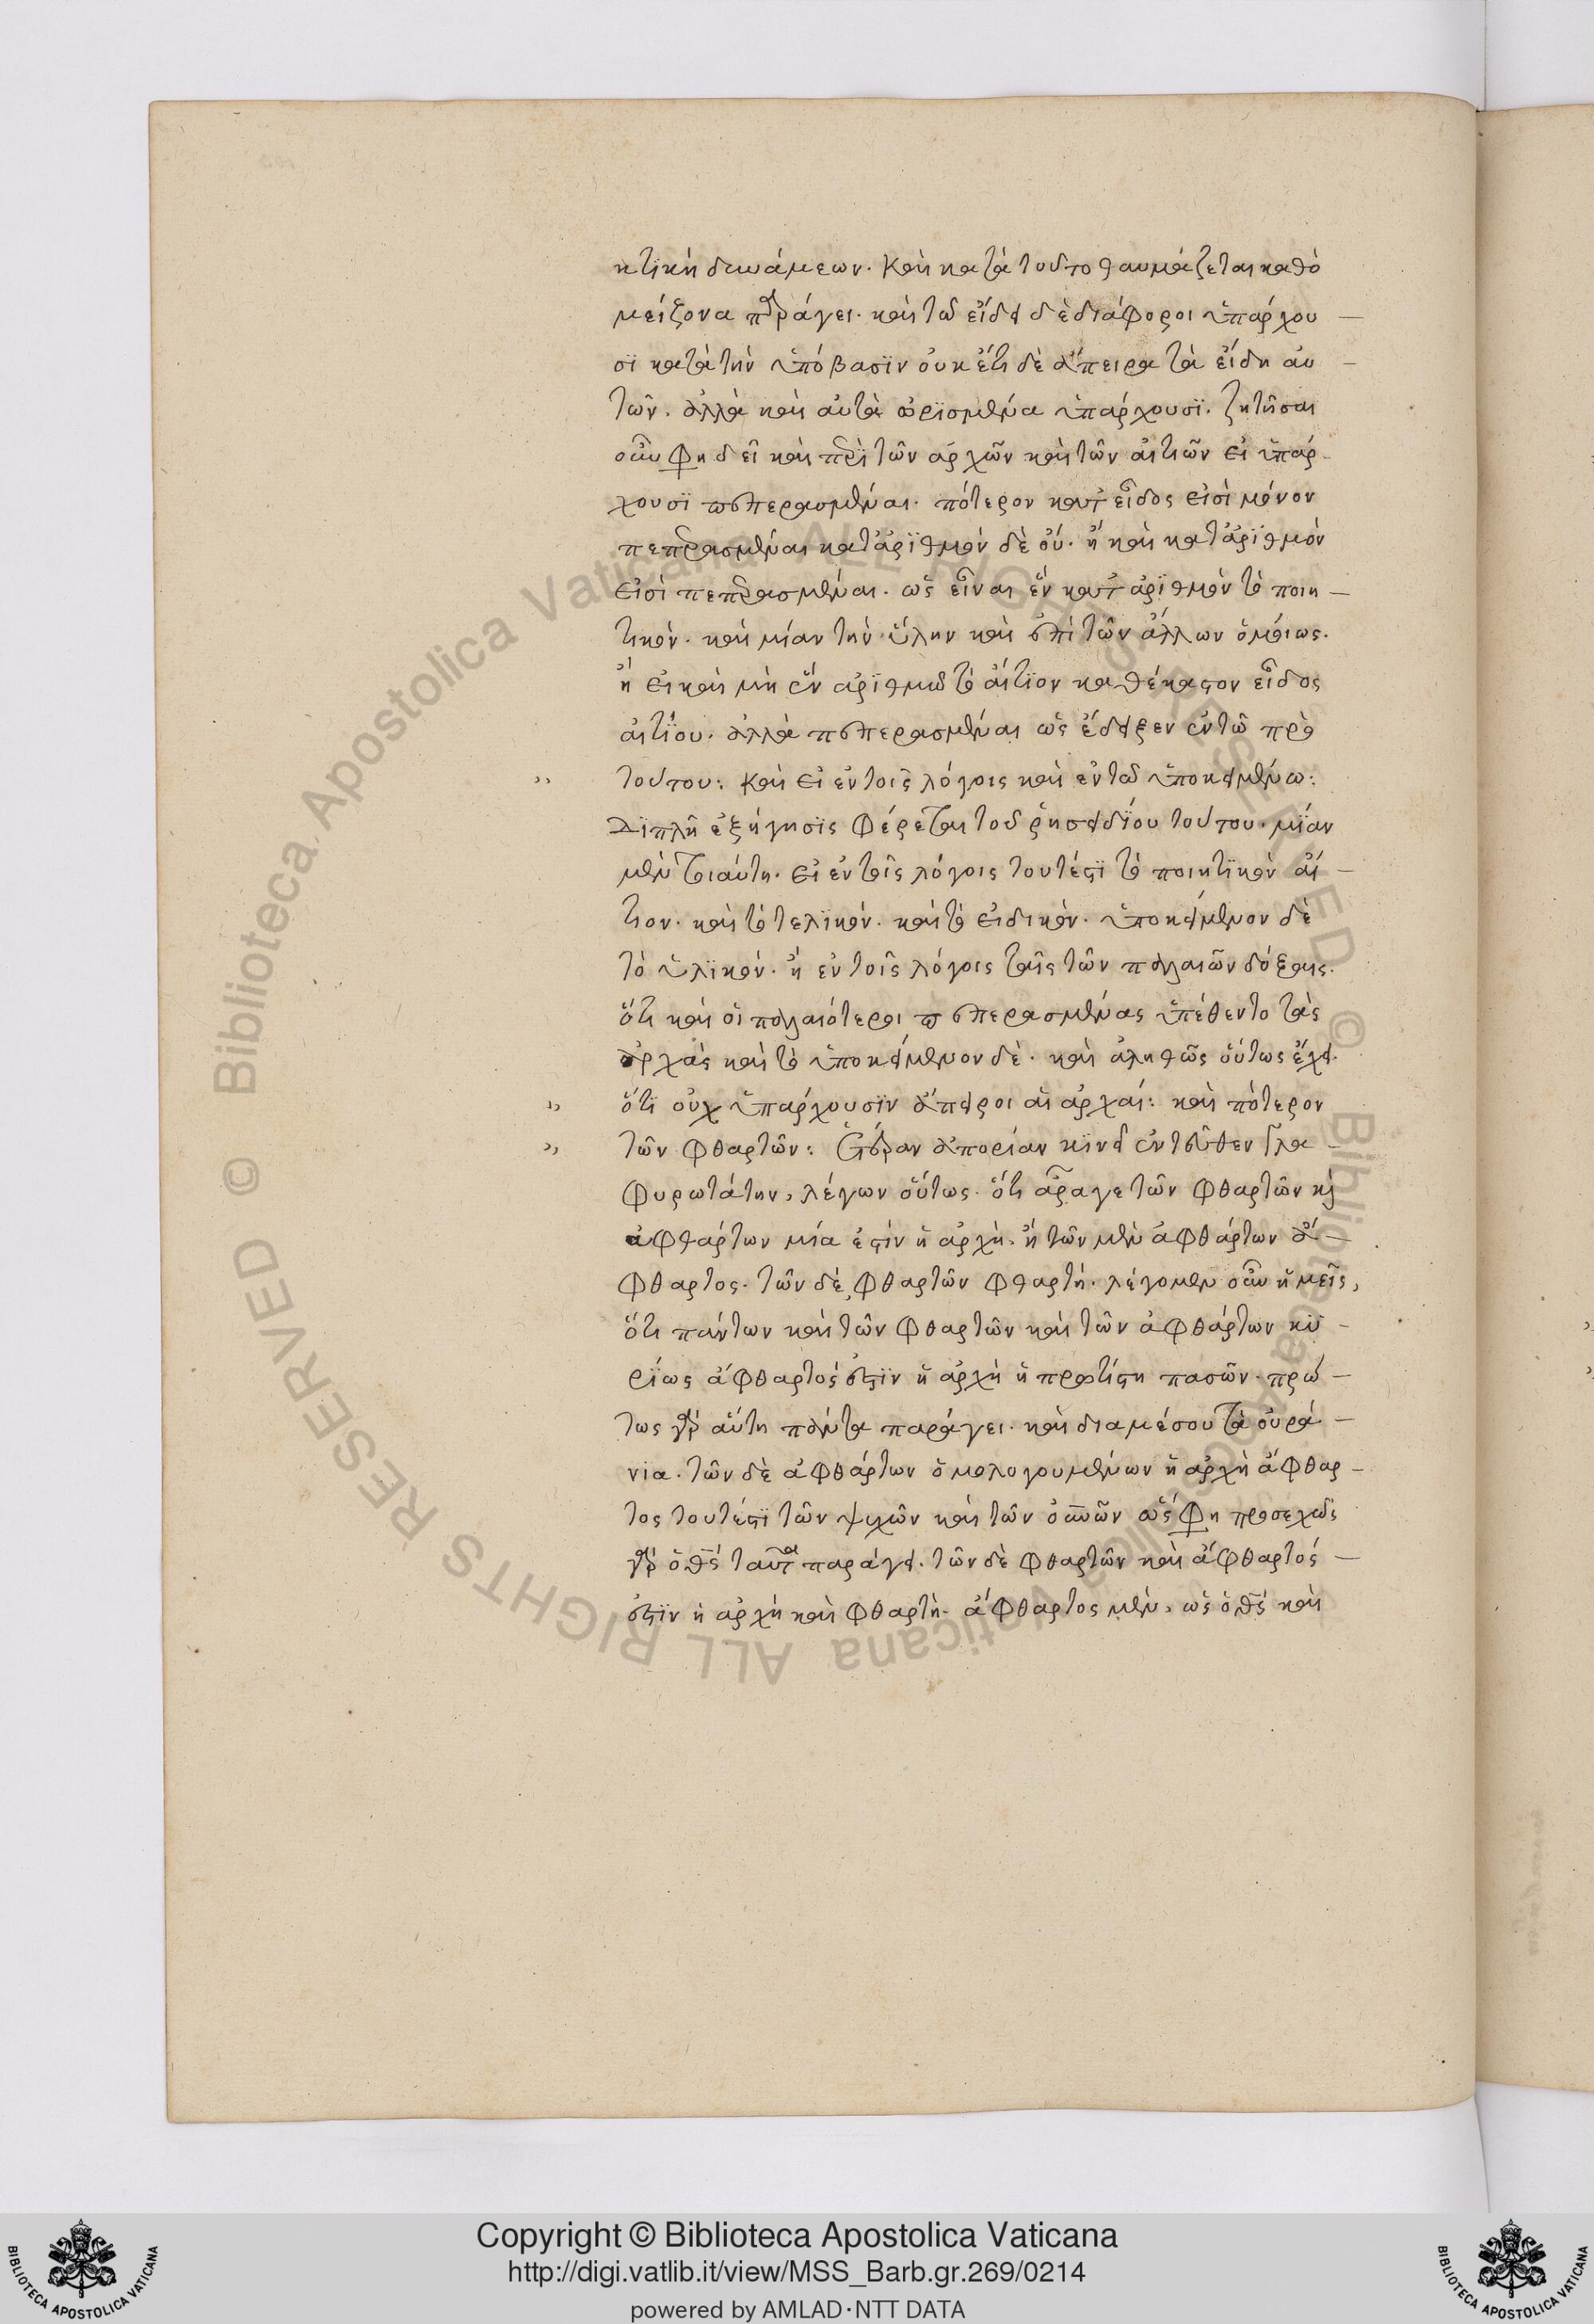 κτϊκὴ δυνάμεων. Καὶ κατὰ τοῦτο θαυμάζεται καθὸ
μείζονα παράγει. καὶ τῶ εἴδει δὲ διάφοροι ὑπάρχου
σϊ κατὰ τὴν ὑπόβασϊν οὐκ ἔτι δὲ ἄπειρα τὰ εἴδη αὐ
τῶν. ἀλλὰ καὶ αὐτὰ ὡρϊσμένα ὑπάρχουσϊ. ζητῆσαι
οὖν φη δεῖ καὶ περὶ τῶν ἀρχῶν καὶ τῶν αἰτιῶν εἰ ὑπάρ
χουσϊ πεπερασμέναι. πότερον κατ εἶδος εἰσὶ μόνον
πεπερασμέναι κατ ἀρϊθμὸν δὲ οὔ. ἢ καὶ κατ ἀρϊθμὸν
εἰσὶ πεπερασμέναι. ὡς εἶναι ἓν κατ ἀρϊθμὸν τὸ ποιη
τικὸν. καὶ μίαν τὴν ὕλην καὶ ἐπὶ τῶν ἄλλων ὁμοίως.
ἢ εἰ καὶ μὴ ἓν ἀρϊθμῶ τὸ αἴτϊον καθέκαστον εἶδος
αἰτΐου. ἀλλὰ πεπερασμέναι ὡς ἔδειξεν ἐν τῶ πρὸ
τούτου: Καὶ εἰ ἐν τοῖς λόγοις καὶ ἐν τῶ ὑποκειμένω:
Διπλῆ ἐξήγησϊς φέρεται τοῦ ῥησειδΐου τούτου. μΐαν
μὲν τοιαύτη. εἰ ἐν τοῖς λόγοις τουτέστϊ τὸ ποιητϊκὸν αἴ
τιον. καὶ τὸ τελϊκόν. καὶ τὸ εἰδικόν. ὑποκείμενον δὲ
τὸ ὑλϊκόν. ἢ ἐν τοῖς λόγοις ταῖς τῶν παλαιῶν δόξαις.
ὅτι καὶ οἱ παλαιότεροι πεπερασμένας ὑπέθεντο τὰς
ἀρχὰς καὶ τὸ ὑποκείμενον δὲ. καὶ ἀληθῶς οὕτως ἔχει.
ὅτϊ οὐχ ὑπάρχουσϊν ἄπειροι αἱ ἀρχαί: καὶ πότερον
τῶν φθαρτῶν: Ἑτέραν ἀπορίαν κϊνεῖ ἐντεῦθεν γλα
φυρωτάτην, λέγων οὕτως. ὅτι ἆραγε τῶν φθαρτῶν κὶ
ἀφθάρτων μία ἐστὶν ἡ ἀρχὴ. ἢ τῶν μὲν ἀφθάρτων ἄ
φθαρτος. τῶν δὲ φθαρτῶν φθαρτή. λέγομεν οὖν ἡμεῖς,
ὅτι πάντων καὶ τῶν φθαρτῶν καὶ τῶν ἀφθάρτων κϋ
ρΐως ἄφθαρτός ἐστϊν ἡ ἀρχὴ ἡ πρωτίστη πασῶν. πρώ
τως γὰρ αὕτη πάντα παράγει. καὶ δια μέσου τὰ οὐρά
νια. τῶν δὲ ἀφθάρτων ὁμολογουμένων ἡ ἀρχὴ ἄφθαρ
τος τουτέστϊ τῶν ψυχῶν καὶ τῶν οὐνῶν ὥς φη προσεχῶς
γὰρ ὁ θς ταῦτα παράγει. τῶν δὲ φθαρτῶν καὶ ἄφθαρτός
ἐστϊν ἡ ἀρχὴ καὶ φθαρτὴ. ἄφθαρτος μὲν, ὡς ὁ θς καὶ